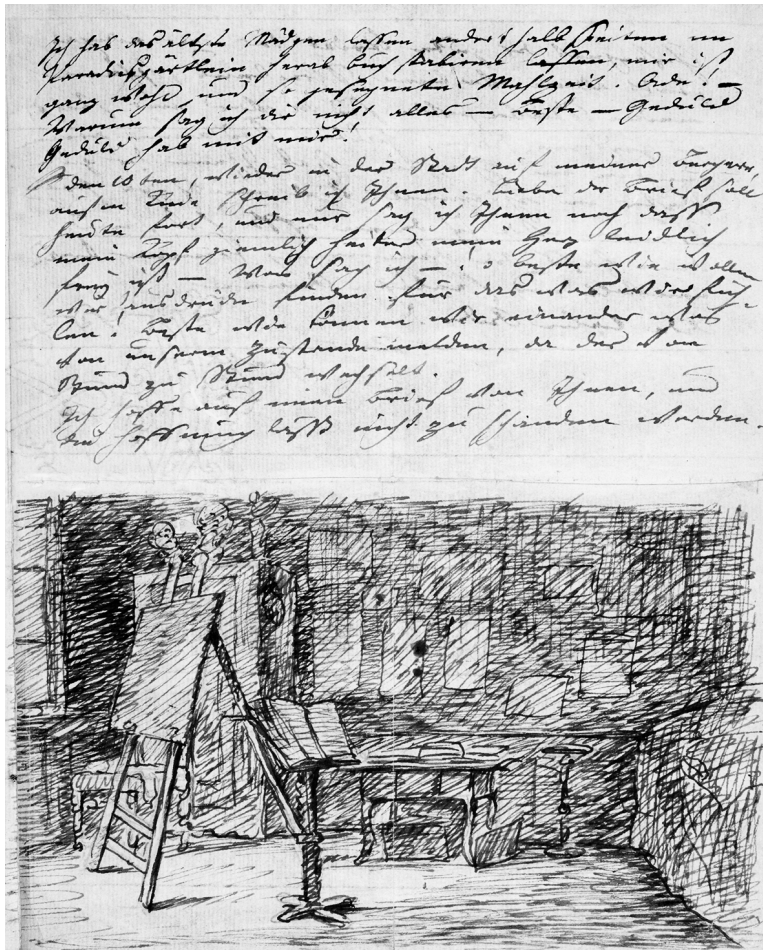 Ich hab das älteste Mädgen lassen anderthalb Seiten im
Paradiesgärtlein herab buchstabiren lassen, mir ist
ganz wohl, und so gesegnete Mahlzeit. Ade! —
Warum sag ich dir nicht alles — Beste — Gedult
Gedult hab mit mir!
den 10ten, wieder in der Stadt auf meiner Bergere,
aufm Knie schreib ich Ihnen. Liebe der Brief soll
heute fort, und nur sag ich Ihnen noch dass
mein Kopf ziemlich heiter mein Herz leidlich
frey ist — Was sag ich —! o beste wie wollen
wir Ausdrücke finden für das was wir füh-
len! Beste wie können wir einander was
von unserm Zustande melden, da der von
Stund zu Stund wechselt.
Ich hoffe auf einen Brief von Ihnen, und
die Hoffnung lässt nicht zu schanden werden.